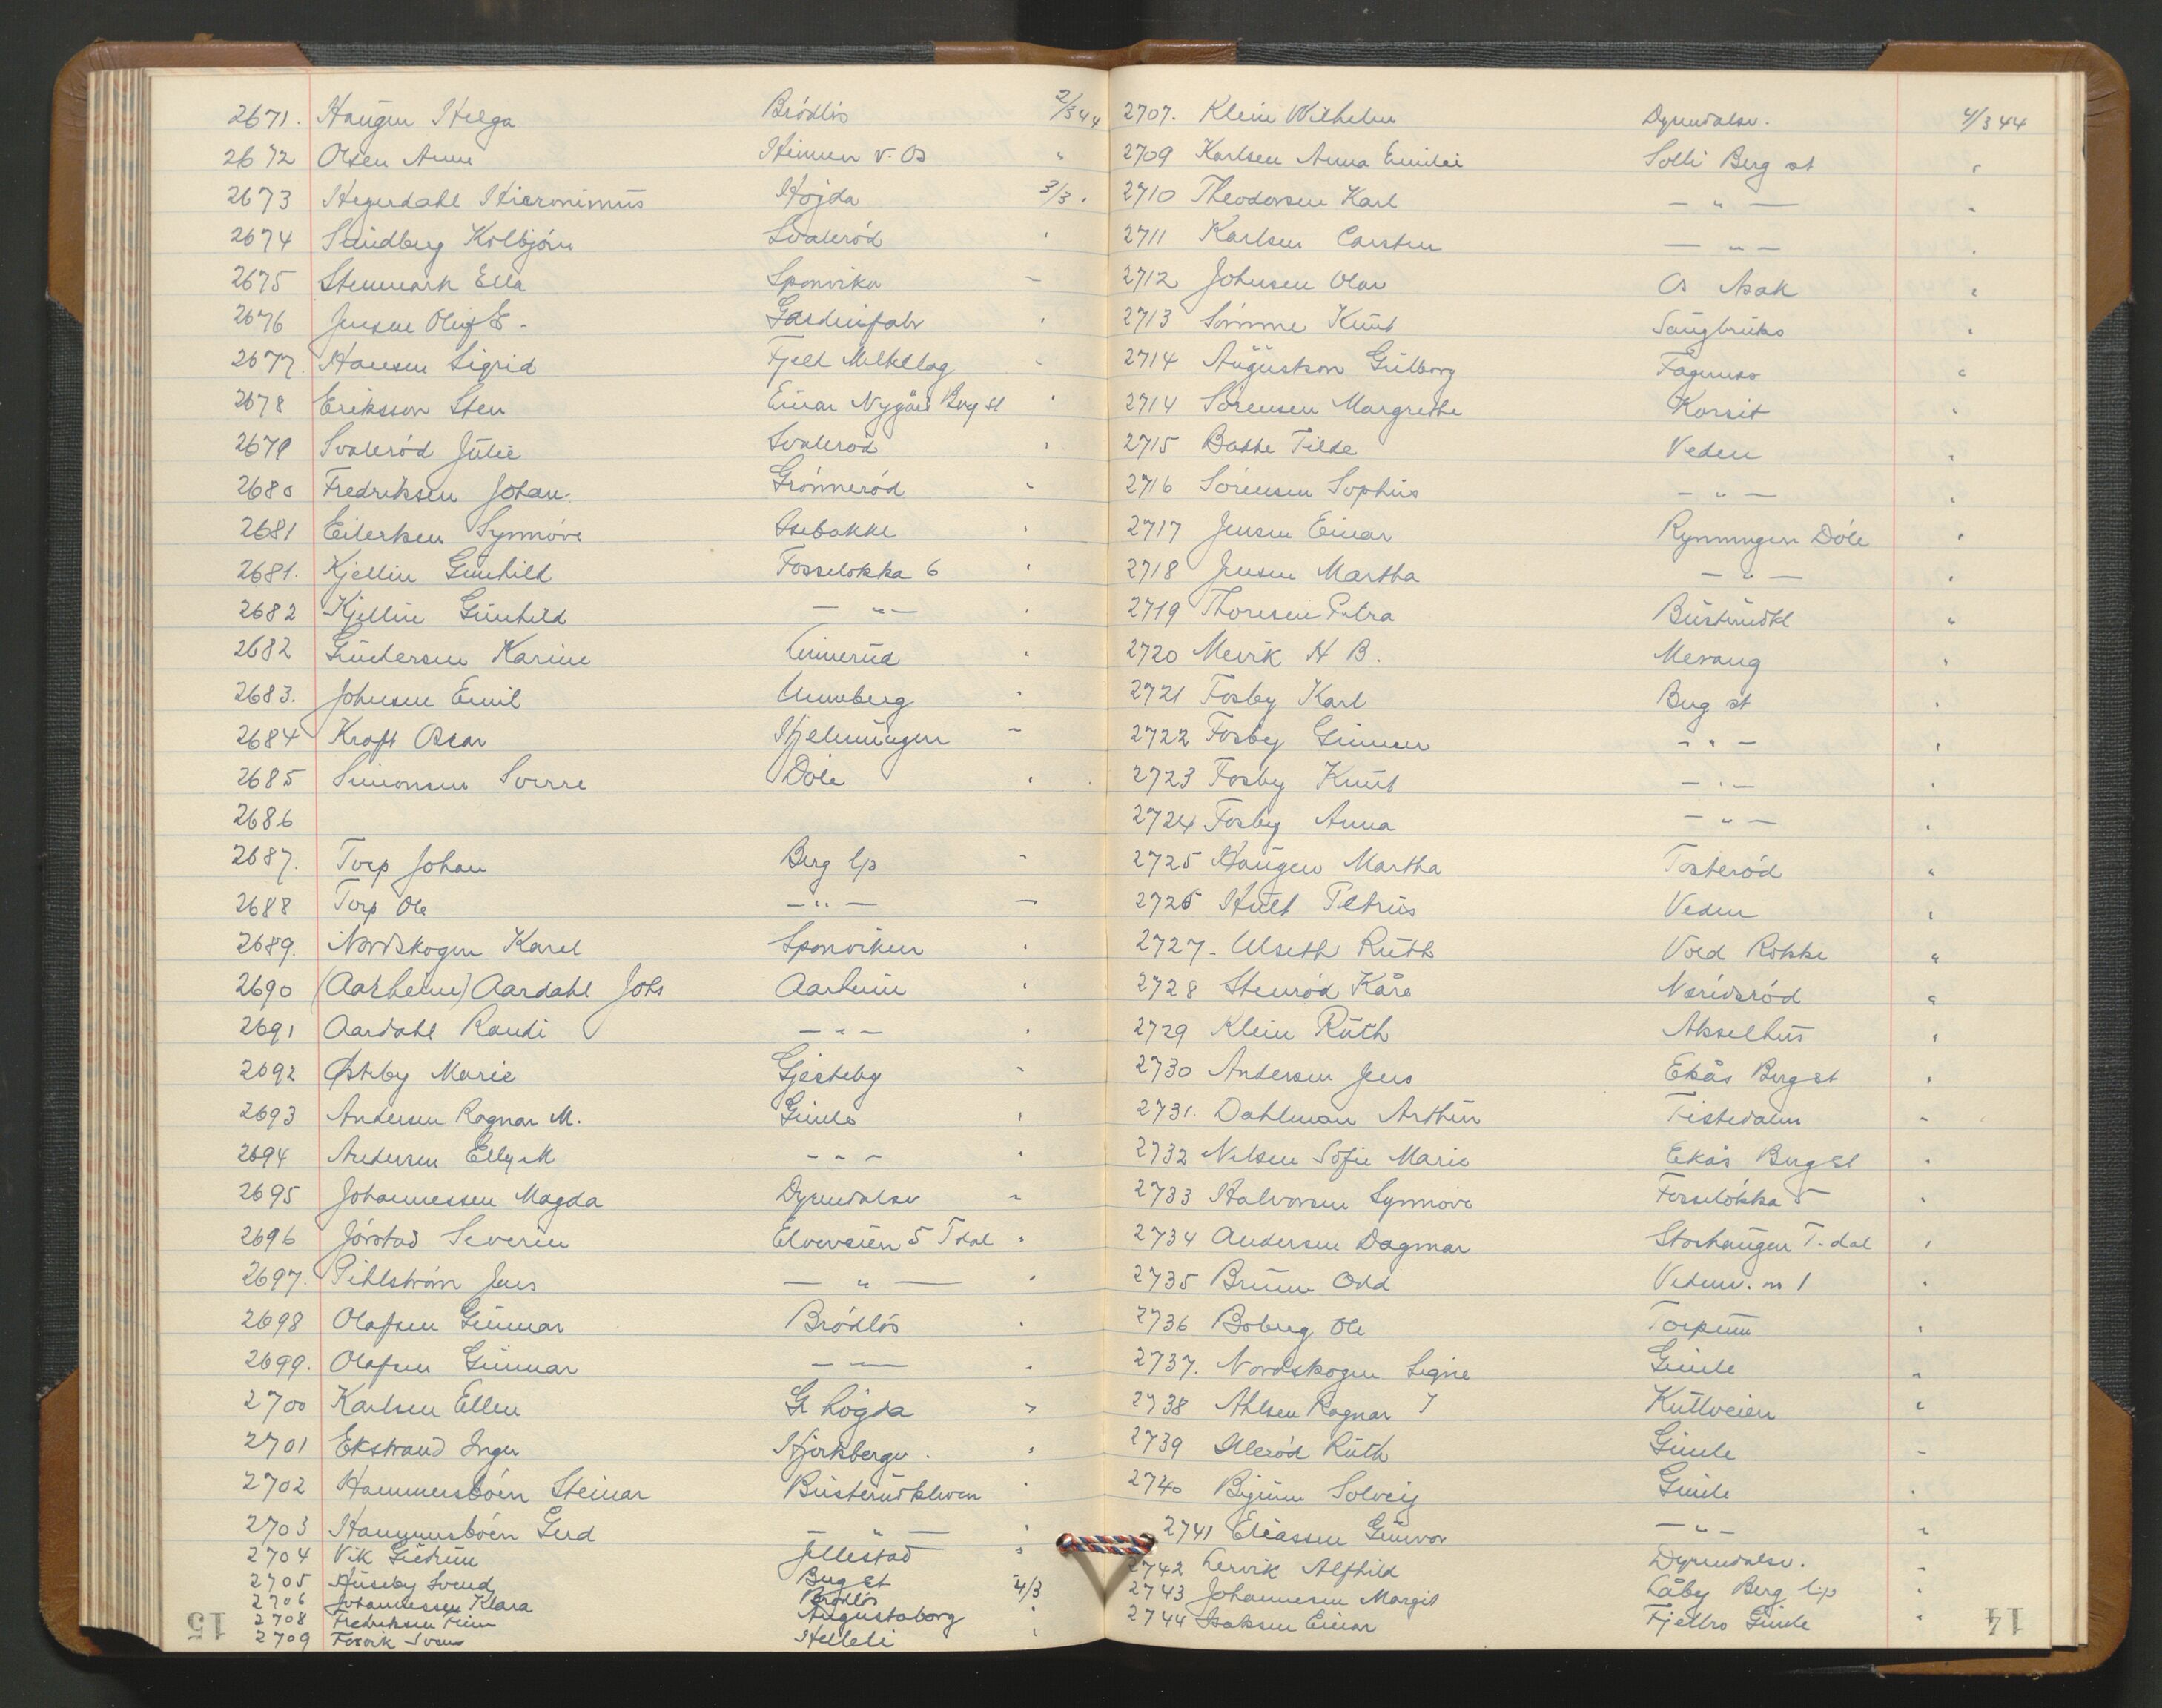 2671. Haugen Helga Brödlös 2/3 44
2672 Olsen Anne v. Os "
2673 Hegerdahl Hieronimus Högda 3/3.
2674 Sundberg Kolbjörn Svaleröd "
2675 Stenmark Ella Sponvika -
2676 Jensen Oluf E. Gardinfabr "
2677. Hansen Sigrid Fjeld Melkelag "
2678 Eriksson Sten Einar Nygård Berg st "
2679 Svaleröd Julie Svaleröd "
2680 Fredriksen Johan. Grönneröd "
2681 Eilertsen Synnöve Isebakke "
2681. Kjellin Gunhild Fosselökka 6 "
2682 Kjellin Gunhild — " — "
2682 Gundersen Karine "
2683. Johnsen Emil Unneberg "
2684 Kraft Oscar Hjelmungen -
2685 Simonsen Sverre Döle "
2686
2687. Torp Johan Berg l/p "
2688 Torp Ole — " — -
2689. Nordskogen Karel Sponviken "
2690 (Aarheim) Aardahl Johs Aarheim "
2691 Aardahl Randi — " — "
2692 Østeby Marie Gjesteby "
2693 Andersen Ragnar M. Gimle "
2694 Andersen Elly M - " - "
2695 Johannessen Magda Dyrendalsv "
2696 Jörstad Severin Elveveien 5 T.dal "
2697. Pihlström Jens — " — "
2698 Olafsen Gunnar Brödlös "
2699. Olafsen Gunnar — — "
2700 Karlsen Ellen G. högda "
2701 Ekstrand Inger Hjorksbergv. "
2702 Hammersböen Steinar Busterudkleven "
2703 Hammersböen Gerd — " — "
2704 Vik Gudrun Jellestad "
2705 Huseby Svend Berg st 4/3
2706 Johannessen Klara Brödlös
2708 Fredriksen Finn Augustaborg "
2709 Svend Helleli "
15
2707. Klein Wilhelm Dyrendalsv. 4/3 44
2709 Karlsen Anna Emilie Solli Berg st "
2710 Theodorsen Karl — " — "
2711 Karlsen Carsten — " — "
2712 Johnsen Olav Os Asak "
2713 Sömme Knut Saugbruks "
2714 Augustson Gulborg Fagernes "
2714 Sörensen Margrethe Korsit "
2715 Bakke Tilde Veden "
2716 Sörensen Sophus — " — "
2717 Jensen Einar Rynningen Döle "
2718 Jensen Martha — " — "
2719 Thoresen Petra Busterudkl "
2720 Mevik H B. Mevang "
2721 Fosby Karl Berg st "
2722 Fosby Gunnar - " - "
2723 Fosby Knut — " — "
2724 Fosby Anna — " — "
2725 Haugen Martha Tosteröd "
2726 Hult Petrus Veden "
2727. Ulseth Ruth Vold Rokke "
2728 Stenröd Kåre "
2729 Klein Ruth Akselhus "
2730 Andersen Jens Ekås Berg st "
2731. Dahlman Arthur Tistedalen "
2732 Nilsen Sofie Marie Ekås Berg st "
2733 Halvorsen Synnöve Fosselökka 5 "
2734 Andersen Dagmar Storhaugen T.dal "
2735 Bruun Odd Vedenv. nr 1 "
2736 Boberg Ole Torpum "
2737. Nordskogen Signe Gimle "
2738 Ahlsen Ragnar J Kutlveien "
2739 Uleröd Ruth Gimle "
2740 Bjerum Solveig Gimle "
2741 Eliassen Gunvor — " — "
2742 Lervik Alfhild Dyrendalsv. "
2743 Johannesen Margit Låby Berg l/p "
2744 Isaksen Einar Fjellro Gimle "
14